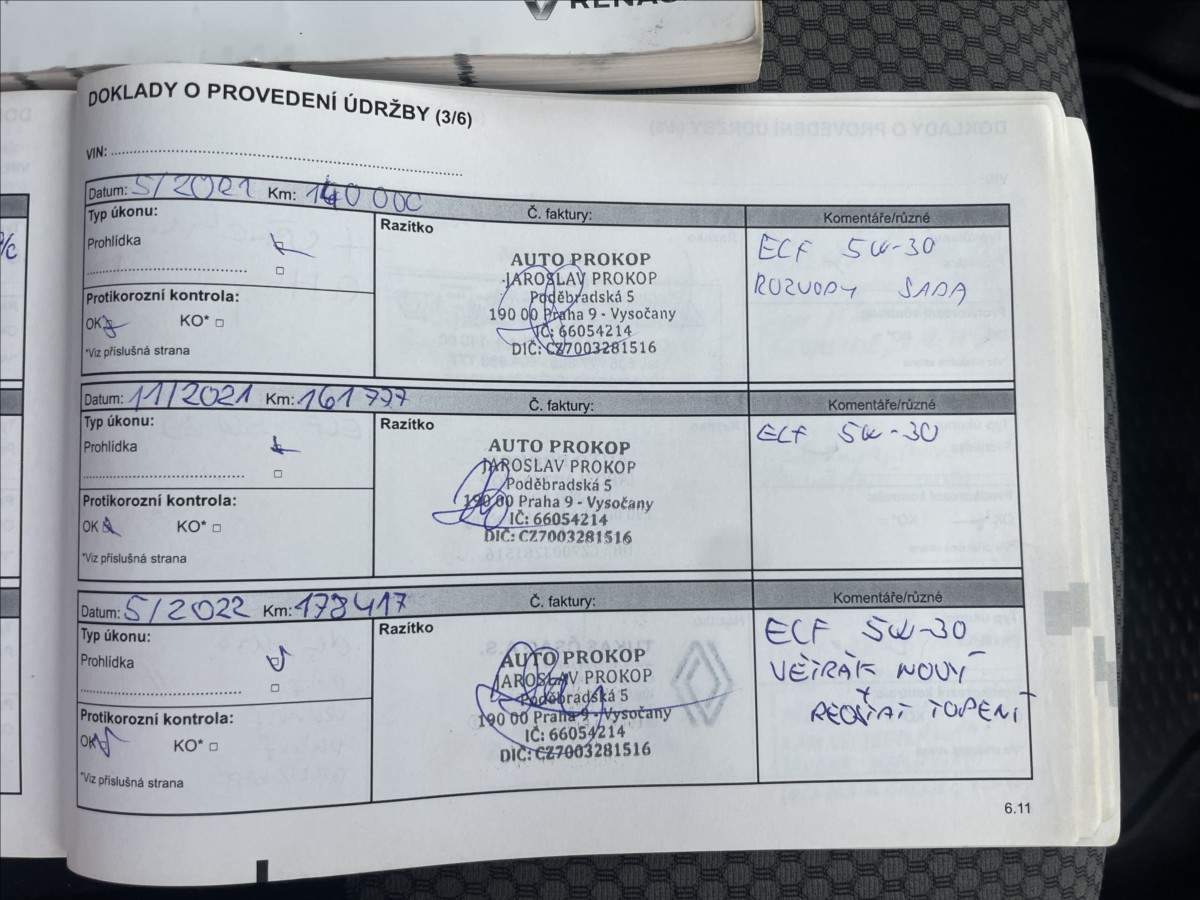 DOKLADY O PROVEDENÍ ÚDRŽBY (3/6)
VIN:
Datum: 5/2021 Km: 140 000
Č. faktury:
Komentáře/různé
Typ úkonu:
Razítko
Prohlídka
Protikorozní kontrola:
OK KO*
*Viz příslušná strana
AUTO PROKOP
JAROSLAV PROKOP
Poděbradská 5
190 00 Praha 9 - Vysočany
IČ: 66054214
DIČ: CZ7003281516
ECF 5W-30
ROZVODY SADA
Datum: 11/2021 Km: 161777
Č. faktury:
Komentáře/různé
Typ úkonu:
Razítko
Prohlídka
Protikorozní kontrola:
OK KO*
*Viz příslušná strana
AUTO PROKOP
JAROSLAV PROKOP
Poděbradská 5
190 00 Praha 9 - Vysočany
IČ: 66054214
DIČ: CZ7003281516
ECF 5W-30
Datum: 5/2022 Km: 178417
Č. faktury:
Komentáře/různé
Typ úkonu:
Razítko
Prohlídka
Protikorozní kontrola:
OK KO*
*Viz příslušná strana
AUTO PROKOP
JAROSLAV PROKOP
Poděbradská 5
190 00 Praha 9 - Vysočany
IČ: 66054214
DIČ: CZ7003281516
ECF 5W-30
VĚTRÁK NOVÝ
+
REOSTAT TOPENÍ
6.11